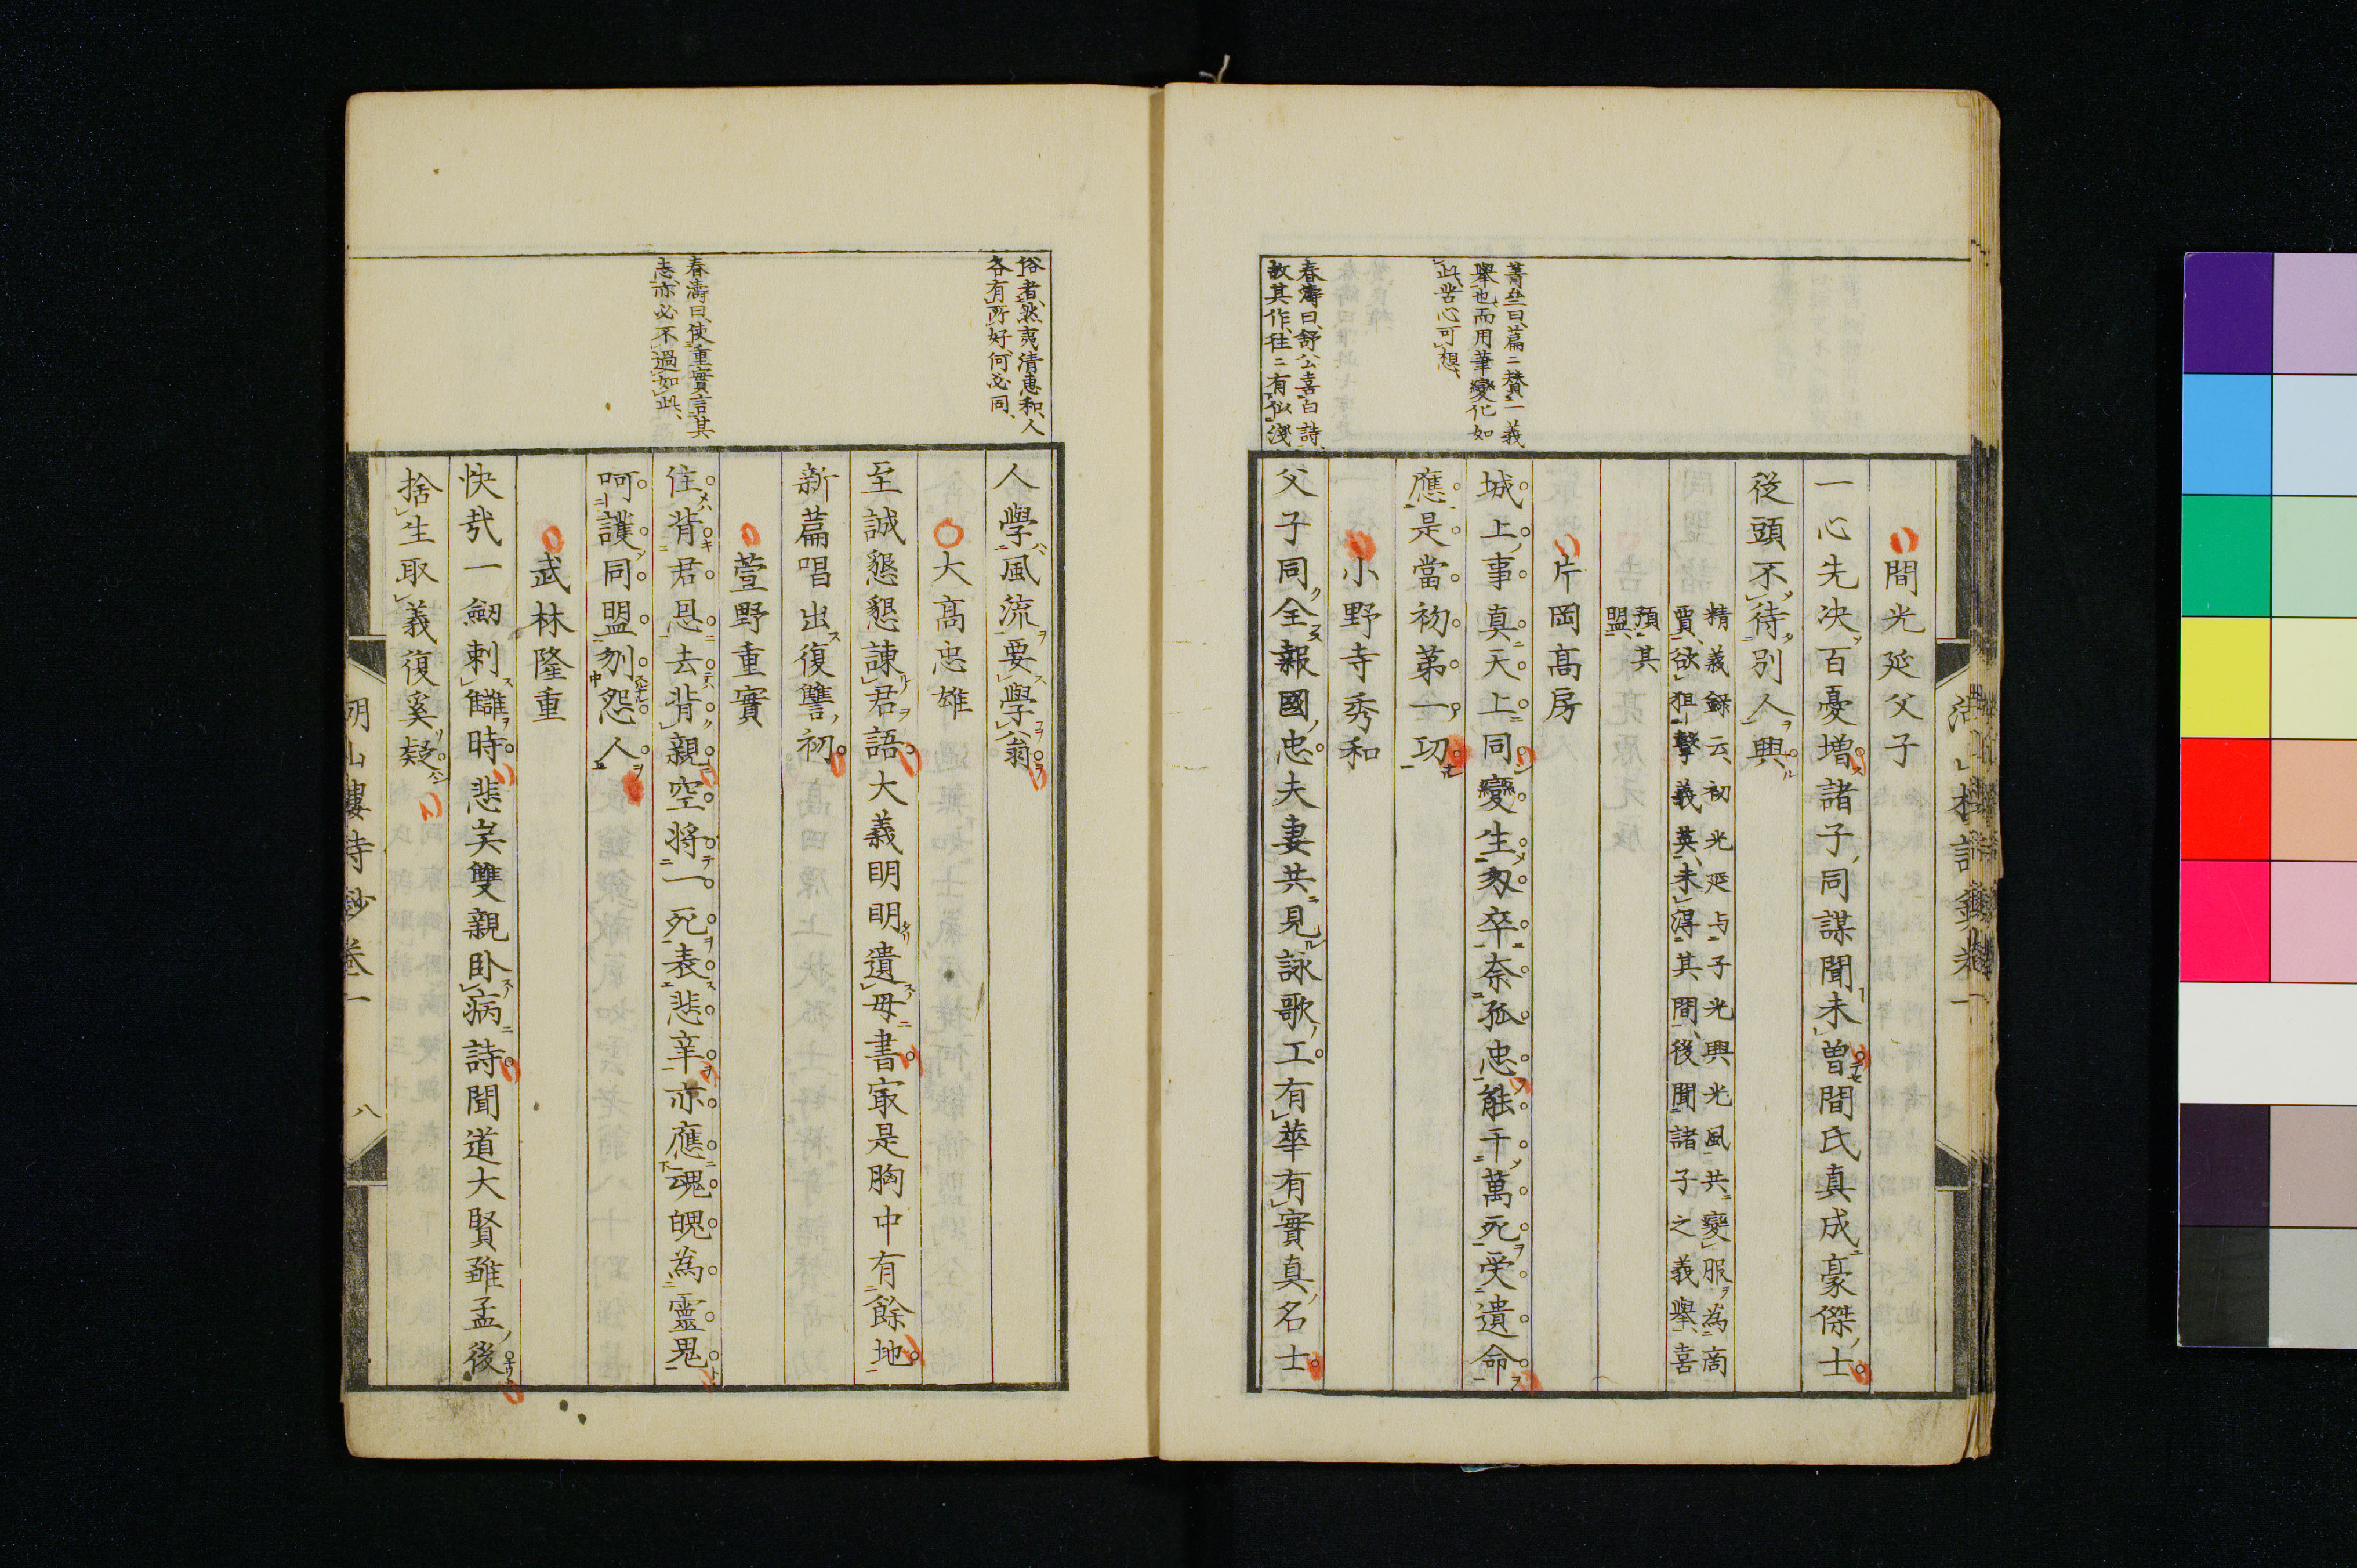 菁丗曰、篇〻賛一義
舉也、而用筆變化如
此、苦心可想、
春濤曰、舒公喜白詩、
故其作、往〻有似淺
間光延父子
一心先决百憂增諸子同謀聞未曽間氏真成豪傑士
從頭不待別人興
精義錄云、初光延与子光興光風共變服為商
賈、欲狙擊義英、未得其間、後聞諸子之義舉、喜
預其
盟、
片岡高房
城上事真天上同變生匆卒奈孤忠能干萬死受遺命
應是當初第一功
小野寺秀和
父子同全報國忠夫妻共見詠歌工有華有實真名士
俗者、然夷清惠和、人
各有所好、何必同、
春濤曰、使重實言其
志、亦必不過如此、
人學風流要學翁
大高忠雄
至誠懇懇諌君語大義明明遺母書㝡是胸中有餘地
新篇唱出復讐初
萱野重實
住背君恩去背親空将一死表悲辛亦應魂魄為靈鬼
呵護同盟刎怨人
武林隆重
快哉一劒刺讎時悲矣雙親臥病詩聞道大賢雖孟後
捨生取義復奚疑
明山樓詩鈔卷一
八